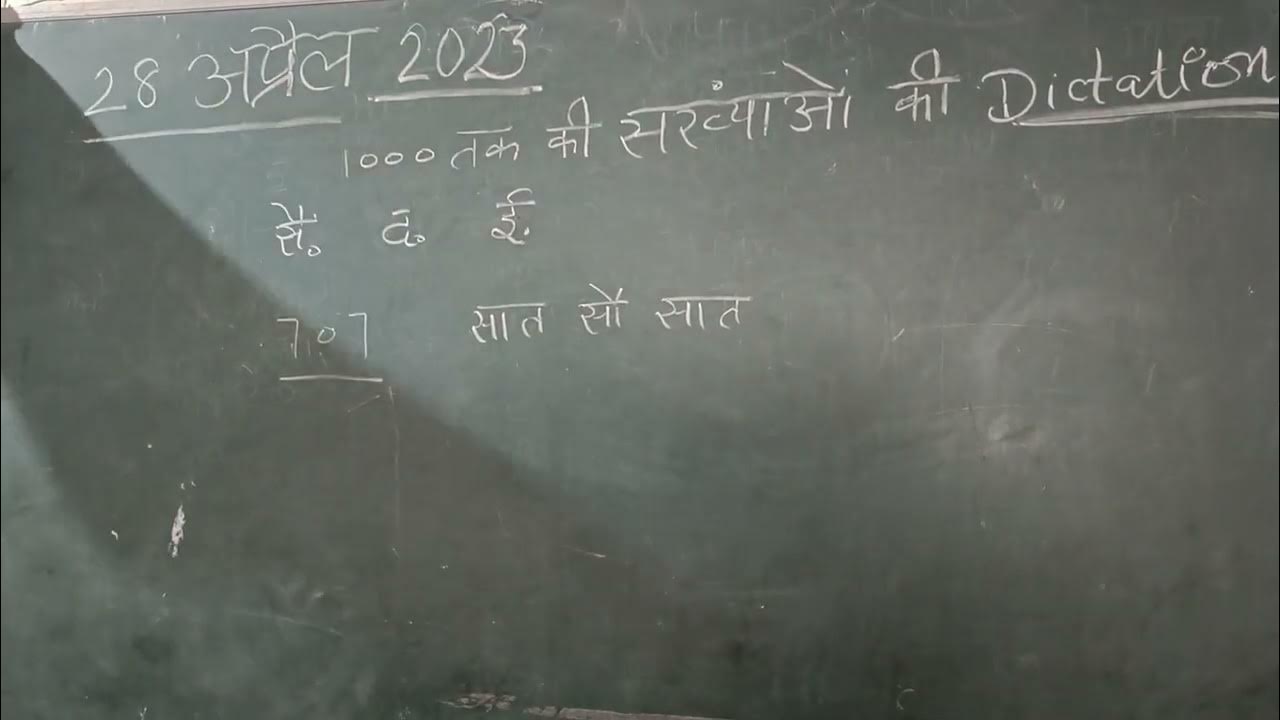 28 अप्रैल 2023
1000 तक की सरव्यांओं की Dictation
सै. द. ई.
707 सात सौ सात